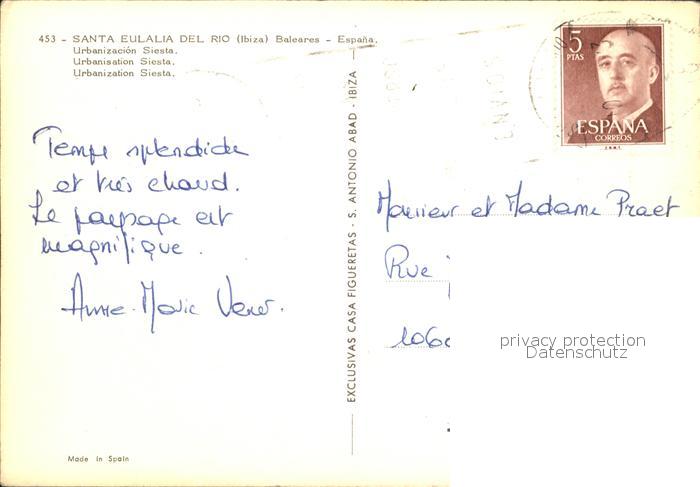 453 - SANTA EULALIA DEL RIO (Ibiza) Baleares - España.
Urbanización Siesta.
Urbanisation Siesta.
Urbanization Siesta.
Temps splendide
et très chaud.
Le paysage est
magnifique.
Anne-Marie
Made in Spain
EXCLUSIVAS CASA FIGUERETAS - S. ANTONIO ABAD - IBIZA
5
PTAS
ESPAÑA
CORREOS
F.N.M.T.
ENVIOS
Monsieur et Madame Praet
Rue
1060
privacy protection
Datenschutz